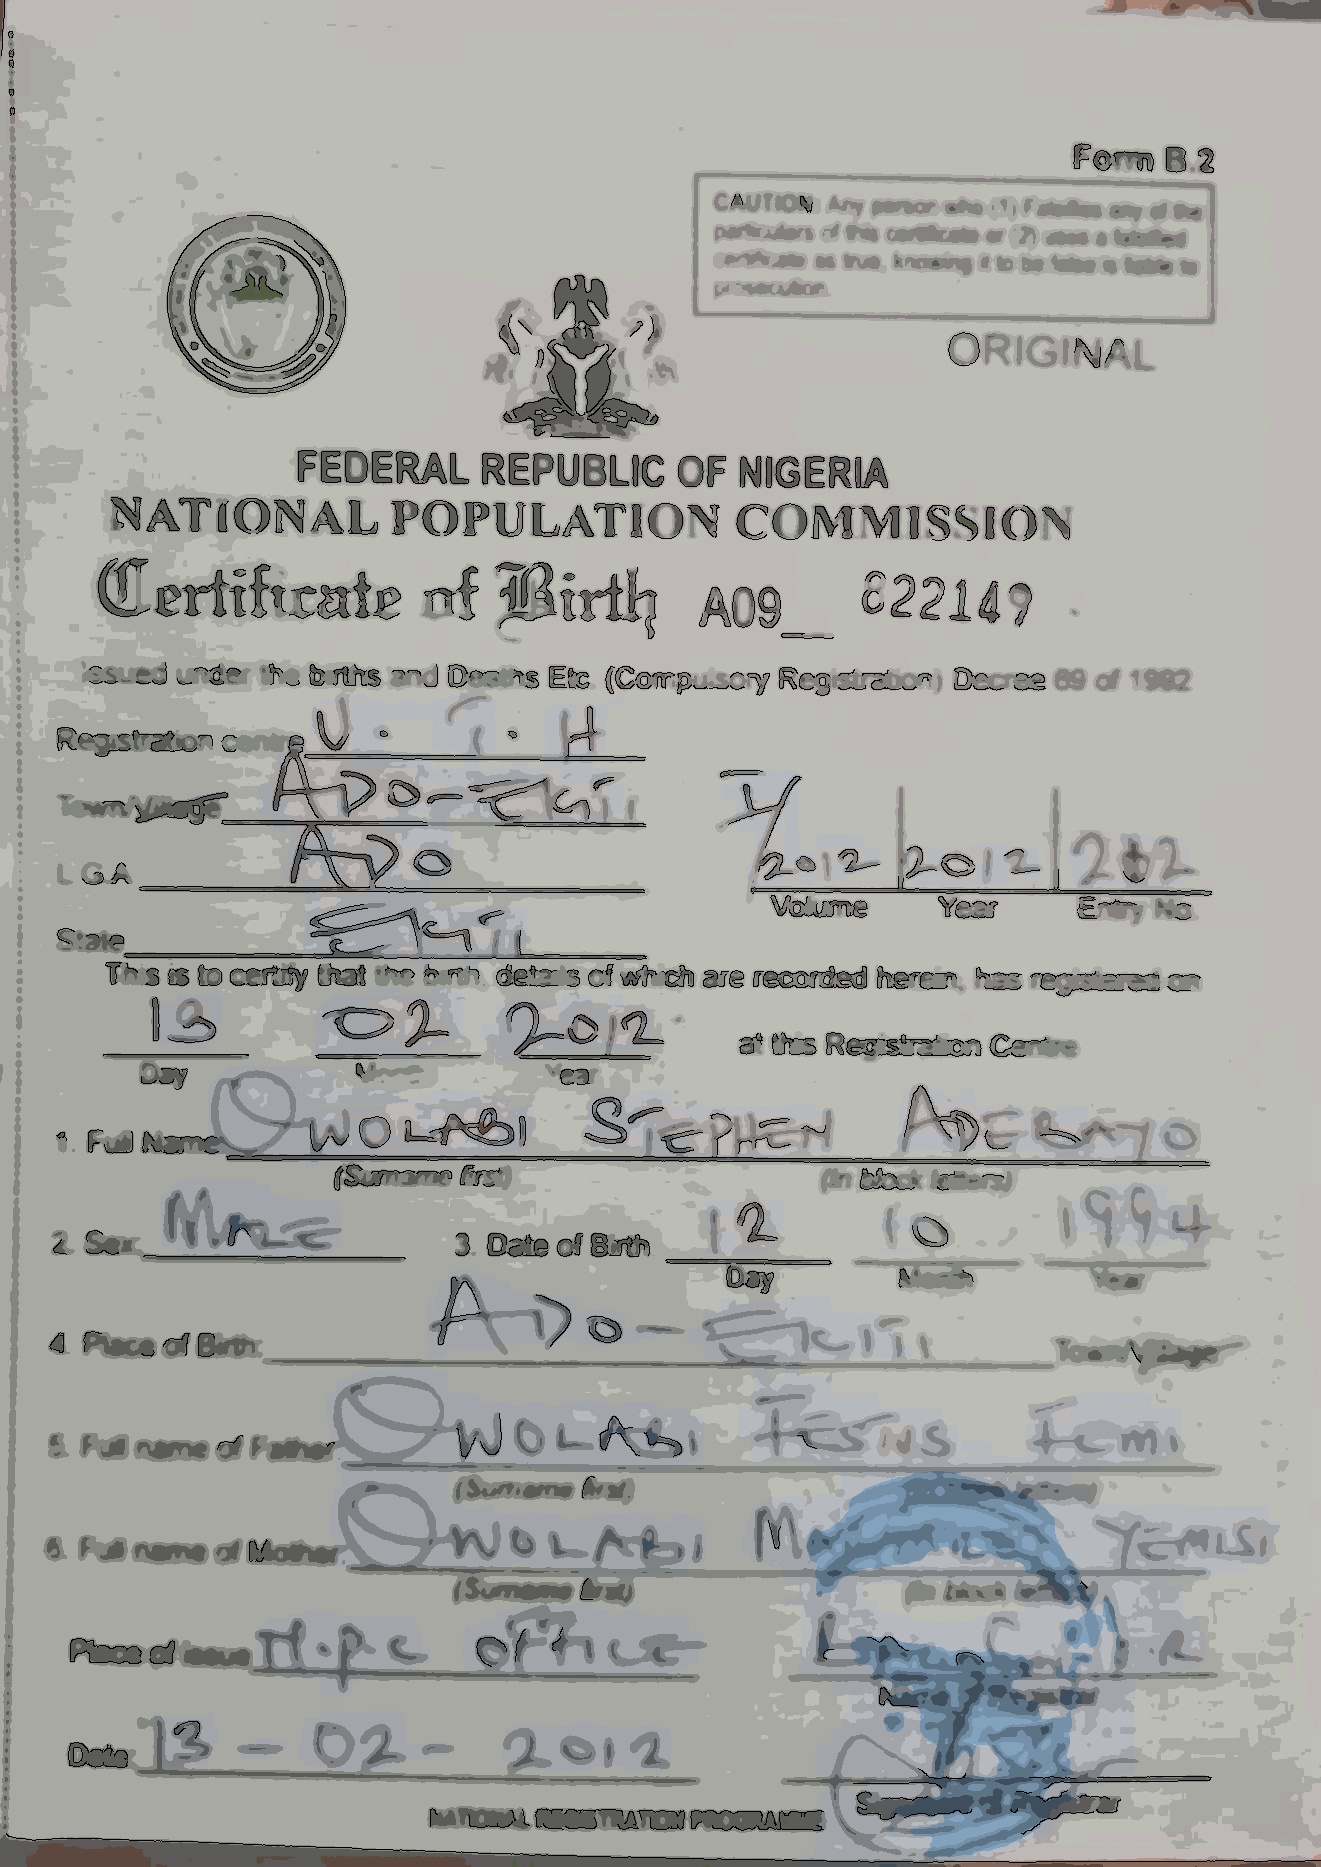 Form B.2
CAUTION: Any person who (1) Falsifies any of the
particulars of this certificate or (2) uses a falsified
certificate as true, knowing it to be false is liable to
prosecution.
ORIGINAL
FEDERAL REPUBLIC OF NIGERIA
NATIONAL POPULATION COMMISSION
Certificate of Birth A09_ 822149
Issued under the births and Deaths Etc. (Compulsory Registration) Decree 69 of 1992
Registration centre U.T.H
Town/Village ADO-EKITI
L.G.A ADO
I/2012 2012 202
Volume Year Entry No.
State EKITI
This is to certify that the birth, details of which are recorded herein, has registered on
13 02 2012 at this Registration Centre
Day Month Year
1. Full Name OWOLABI STEPHEN ADEBAYO
(Surname first) (In block letters)
2. Sex MALE 3. Date of Birth 12 10 1994
Day Month Year
4. Place of Birth ADO-EKITI Town/Village
5. Full name of Father OWOLABI FEMI
(Surname first)
6. Full name of Mother OWOLABI YEMISI
(Surname first) (In block letters)
Place of issue N.P.C OFFICE
Date 13-02-2012
Signature of Registrar
NATIONAL REGISTRATION PROGRAMME